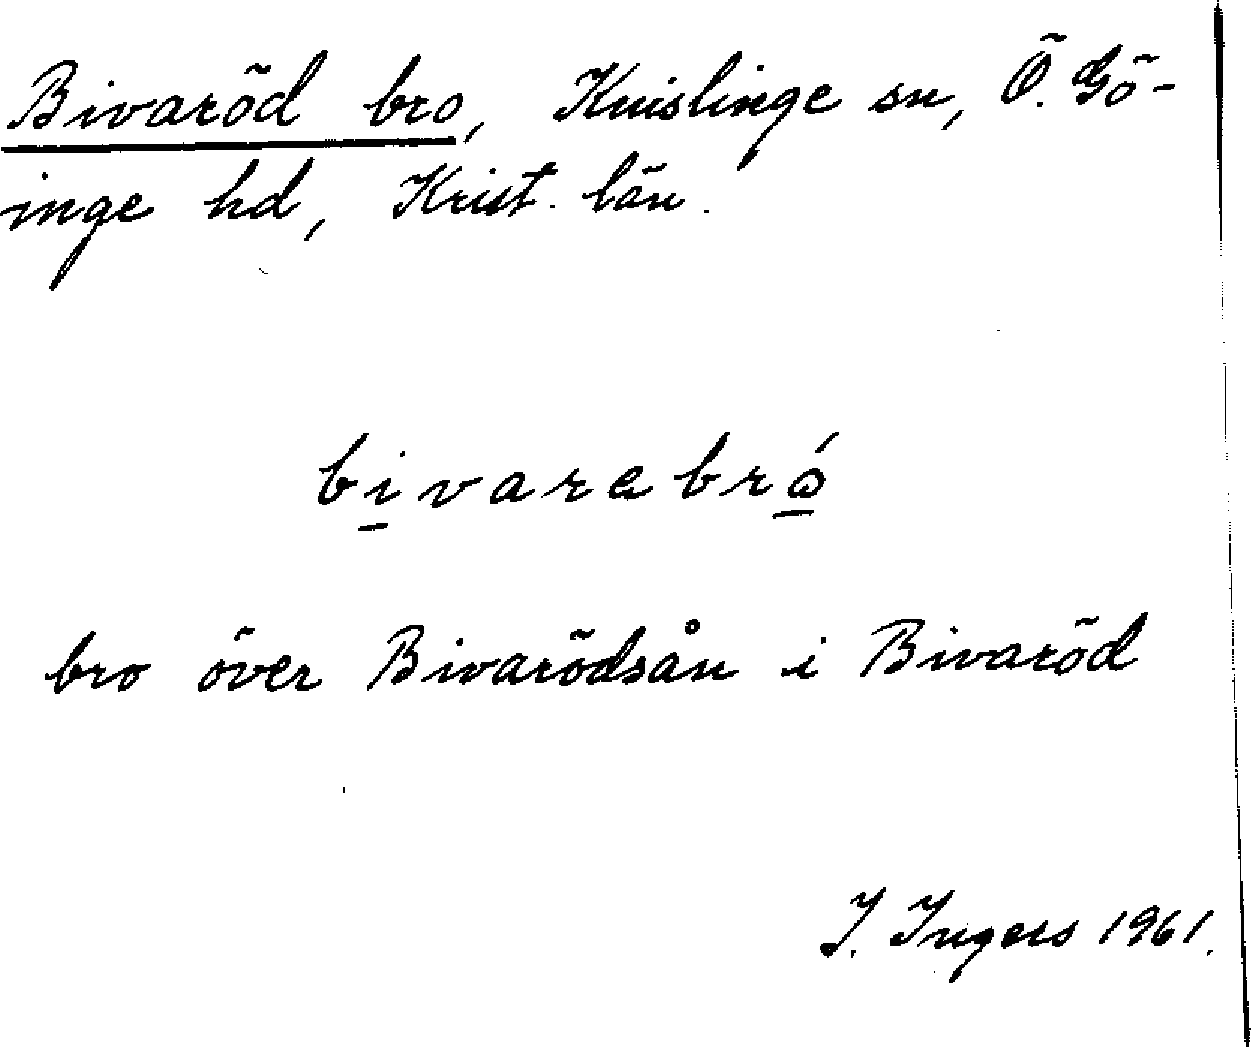 Bivaröd bro, Knislinge sn, Ö. Gö-
inge hd, Krist. län.
bivarabró
bro över Bivarödsån i Bivaröd
I. Ingers 1961.